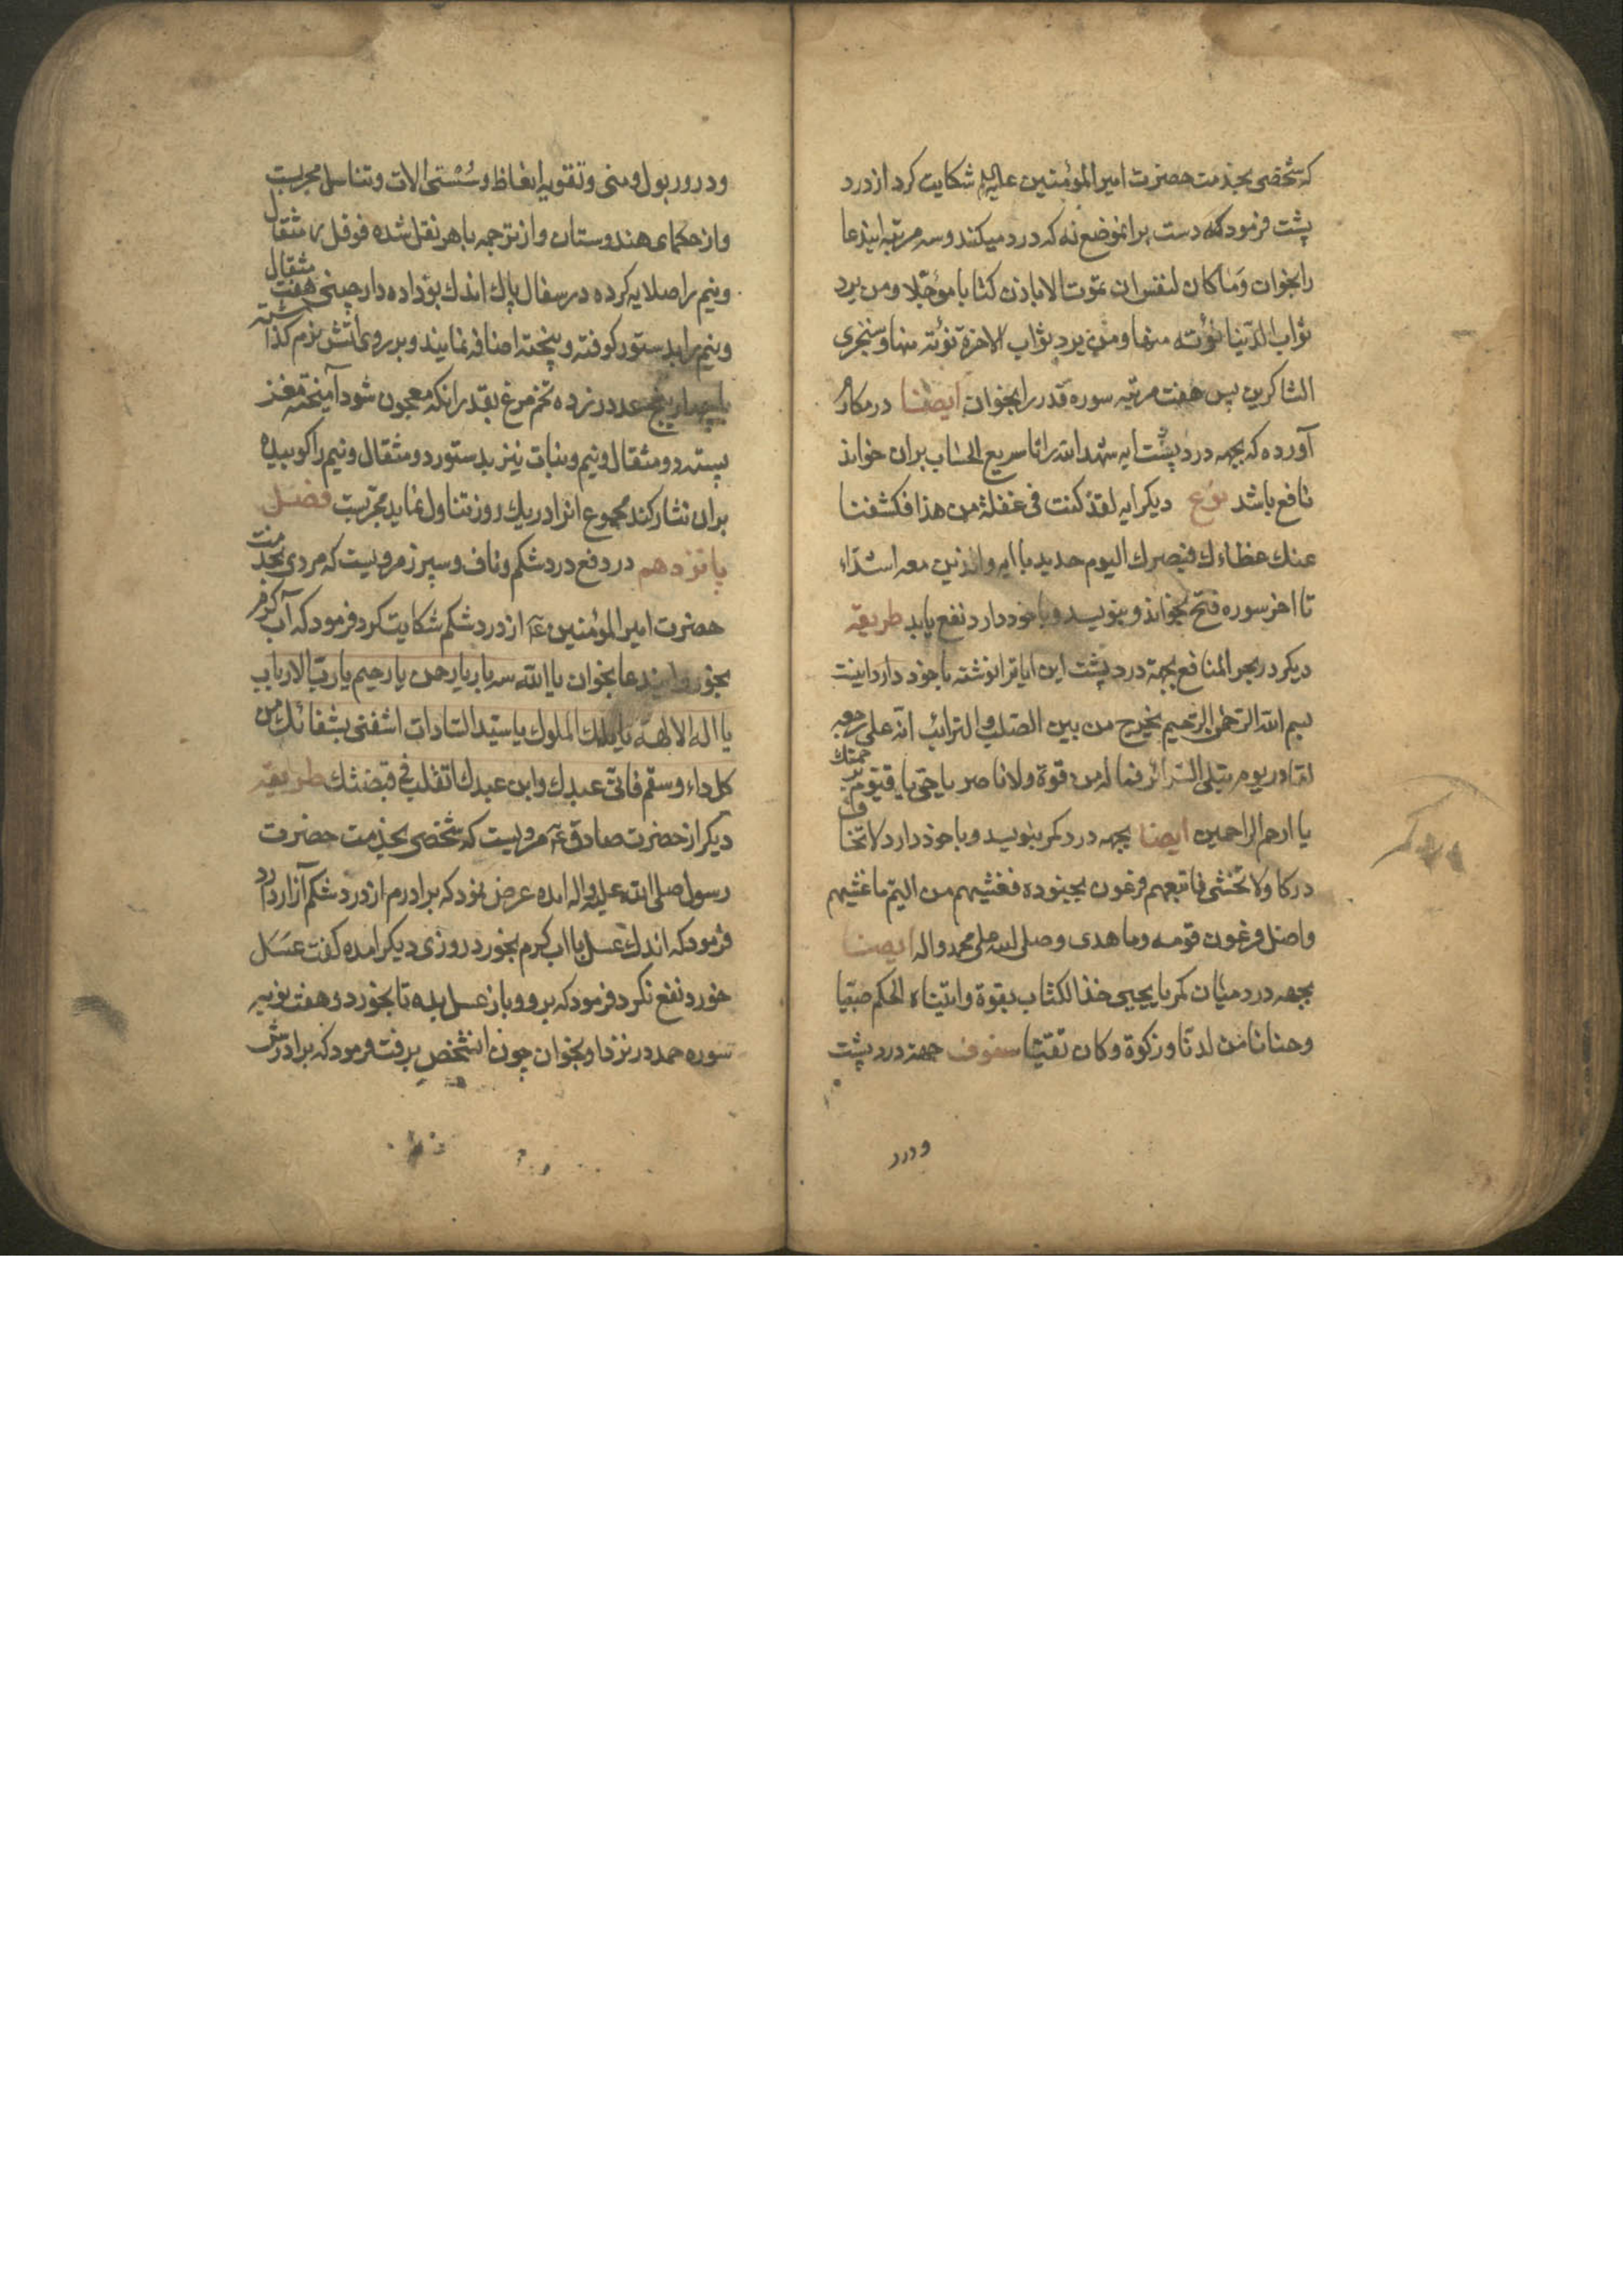 که شخصی بخدمت حضرت امیر المؤمنین علیه السلم شکایت کرد از درد
پشت فرمود که دست بر انموضع نه که درد میکند و سه مرتبه ایندعا
را بخوان وَما کان لنفس ان تموت الا باذن کتابا مؤجّلا و من یرد
ثواب الدّنیا نؤته منها و من یرد ثواب الاخرة نؤته منها و سنجزی
الشاکرین پس هفت مرتبه سوره قدر را بخوان ایضا در مکارم
آورده که بجهه درد پشت ایه شهد الله را تا سریع الحساب بران خواند
نافع باشد نوع دیکر ایه لقد کنت فی غفلة من هذا فکشفنا
عنك غطاءك فبصرك الیوم حدید با ایه والذین معه اشدّاء
تا اخر سوره فتح بخواند و بنویسد و با خود دارد نفع یابد طریقه
دیکر در بحر المنافع بجهة درد پشت این ایاترا نوشته با خود دارد اینست
بسم الله الرّحمن الرّحیم یخرج من بین الصّلب و التّرائب انّه علی رجعه
لقادر یوم تبلی السّرائر فما له من قوة ولا ناصر یا حیّ یا قیّوم برحمتك
یا ارحم الراحمین ایضا بجهه درد کمر بنویسد و با خود دارد لا تخاف
درکا ولا تخشی فاتبعهم فرعون بجنوده فغشیهم من الیّم ما غشیهم
و اضل فرعون قومه و ما هدی و صلی الله علی محمد و اله ایضا
بجهه درد میان کمر یا یحیی خذ الکتاب بقوة و اتیناه الحکم صبیّا
و حنانا من لدنّا و زکوة و کان تقیّا سفوف جهة درد پشت
و درد
و درور بول و منی و تقویه انعاظ و سُستی الات و تناسل مجربست
و از حکمای هندوستان و از ترجمه باهر نقل شده فوفل مثقال
و نیم را صلایه کرده در سفال پاك اندك بو داده دارچینی هفت مثقال
و نیم را بدستور کوفته و بیخته اضافه نمایند و بر روی اتش نرم کذاشته
با چهار پنج عدد زرده تخم مرغ بقدر انکه معجون شود آمیخته مغز
پسته دو مثقال و نیم و نبات نیز بدستور دو مثقال و نیم را کوبیده
بران نثار کند مجموع انرا در یك روز تناول نماید مجرّبست فصل
پانزدهم در دفع درد شکم و ناف و سپرز مرویست که مردی بخدمت
حضرت امیر المؤمنین ع از درد شکم شکایت کرد فرمود که آب کرم
بخور و ایندعا بخوان یا الله سه بار یا رحمن یا رحیم یا ربّ الارباب
یا اله الالهة یا ملك الملوك یا سیّد السّادات اشفنی بشفائك من
کل داء و سقم فانّی عبدك و ابن عبدك اتقلب فی قبضتك طریقه
دیکر از حضرت صادق ع مرویست که شخصی بخدمت حضرت
رسول صلی الله علیه و اله امده عرض نمود که برادرم از درد شکم آزار دارد
فرمود که اندك عسل با اب کرم بخورد روزی دیکر امده کفت عسَل
خورد نفع نکرد فرمود که برو و باز عسل بده تا بخورد و هفت نوبه
سوره حمد در نزد او بخوان چون انشخص برفت فرمود که برادرش